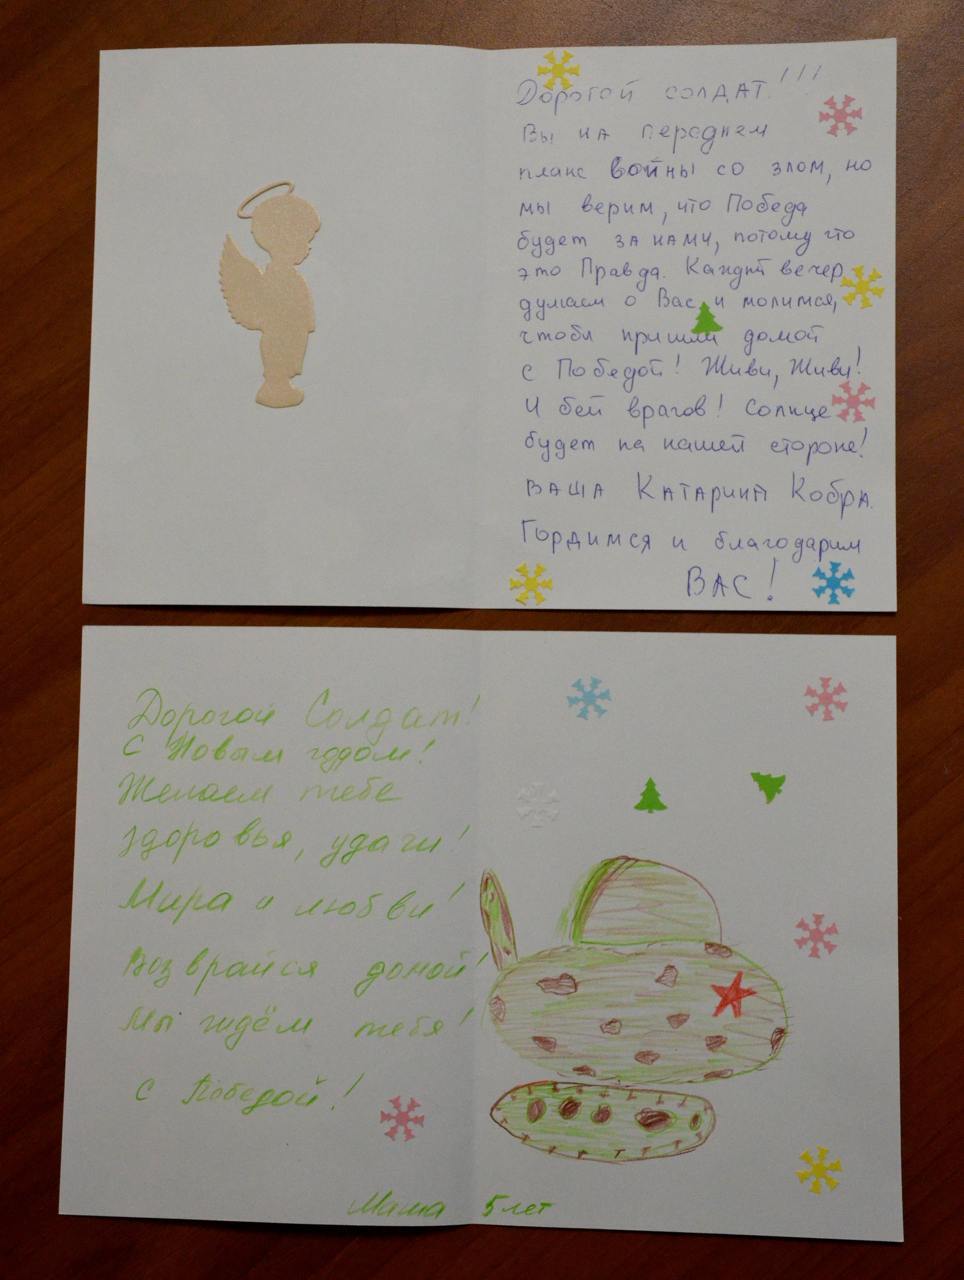 Дорогой солдат!!!
Вы на переднем
плане войны со злом, но
мы верим, что Победа
будет за нами, потому что
это Правда. Каждый вечер
думаем о Вас и молимся,
чтобы пришли домой
с Победой! Живи, Живи!
И бей врагов! Солнце
будет на нашей стороне!
ВАША Катарина Кобра.
Гордимся и благодарим
ВАС!
Дорогой Солдат!
С Новым годом!
Желаем тебе
здоровья, удачи!
Мира и любви!
Возврайся домой!
Мы ждём тебя!
С Победой!
Маша 5 лет